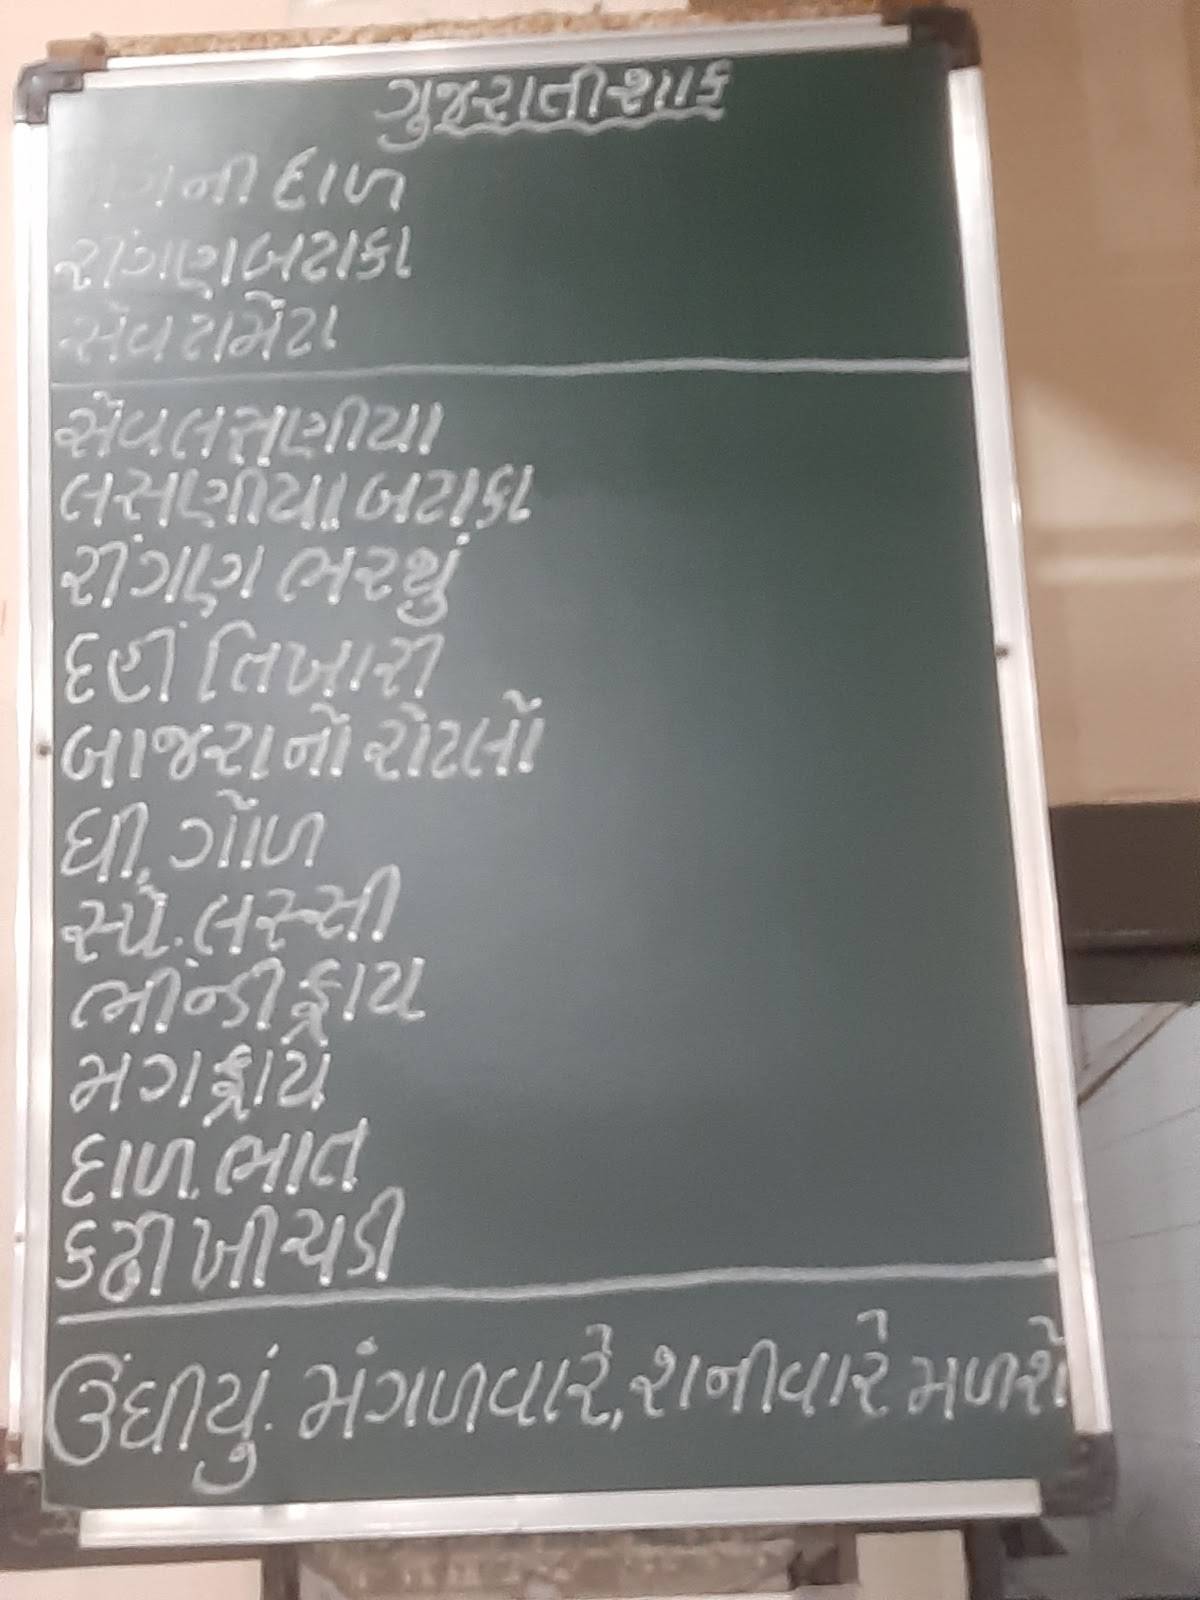 ગુજરાતી શાક
દાળ
રીંગણ બટાકા
સેવ ટામેટા
સેવ લસણીયા
લસણીયા બટાકા
રીંગણ ભરથું
દહીં તિખારી
બાજરાનો રોટલો
ઘી, ગોળ
સ્પે. લસ્સી
ભીન્ડી ફ્રાય
મગ ફ્રાય
દાળ, ભાત
કઢી ખીચડી
ઊંધીયું. મંગળવારે, શનીવારે મળશે